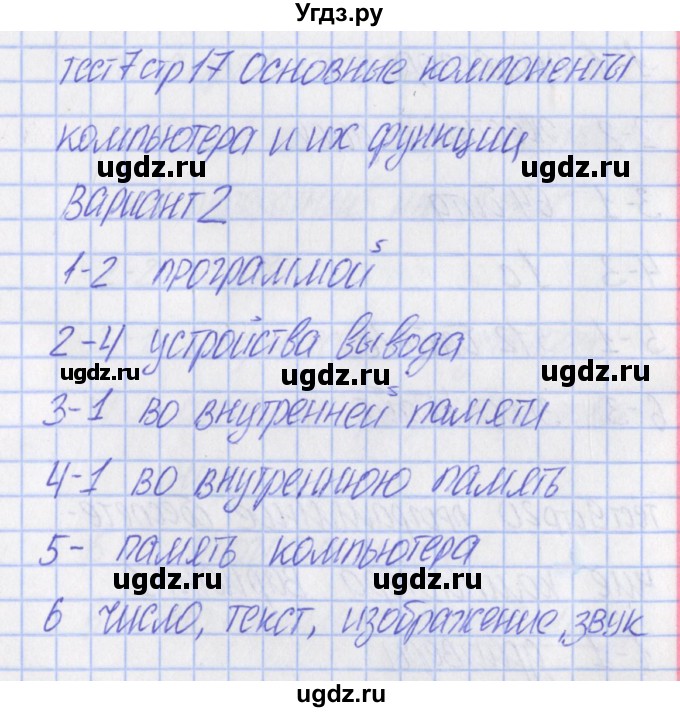 Угдз.ру
тест 7 стр 17 Основные компоненты
компьютера и их функции
ugdz.ru ugdz.ru
Вариант 2
1-2 программой
ugdz.ru ugdz.ru
2-4 устройства вывода
ugdz.ru ugdz.ru ugdz.ru
3-1 во внутренней памяти
ugdz.ru ugdz.ru
4-1 во внутреннюю память
ugdz.ru ugdz.ru
5- память компьютера
ugdz.ru ugdz.ru
6 число, текст, изображение, звук
ugdz.ru